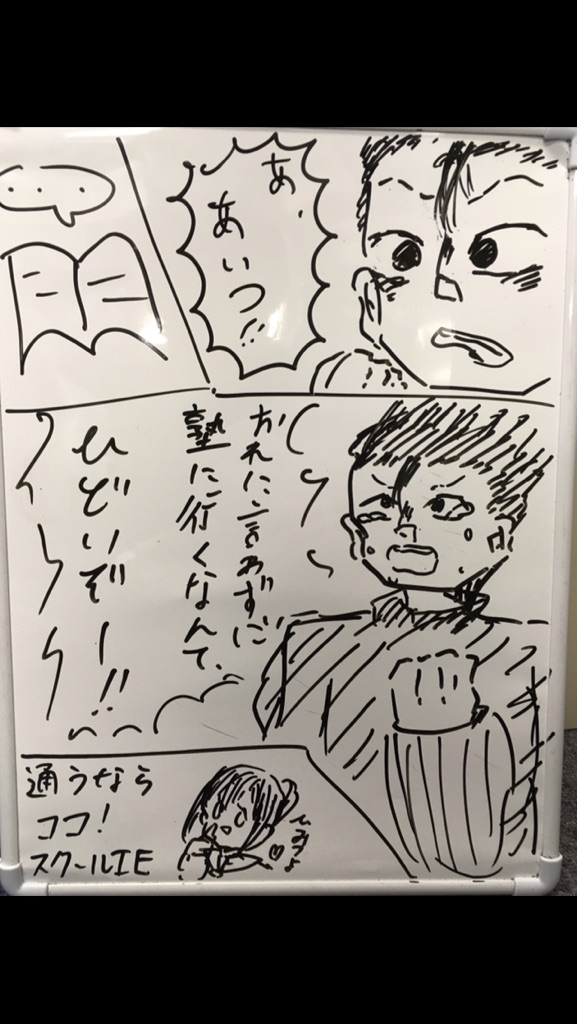 あ、
あいつ!!
・・・
おれに言わずに
塾に行くなんて、
ひどいぞー!!
通うなら
ココ！
スクールIE